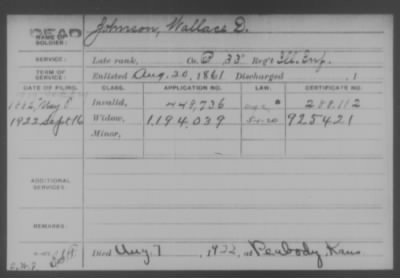 DEAD
NAME OF SOLDIER: Johnson, Wallace D.
SERVICE: Late rank, Co. B 33" Reg't Ill. Inf.
TERM OF SERVICE: Enlisted Aug. 20, 1861 Discharged , 1
DATE OF FILING. CLASS. APPLICATION NO. LAW. CERTIFICATE NO.
May 8 Invalid, 449,736 288.112
1922 Sept 16 Widow, 1194,039 925421
Minor,
ADDITIONAL SERVICES:
REMARKS:
Died Aug. 7, 1922, at Peabody, Kans